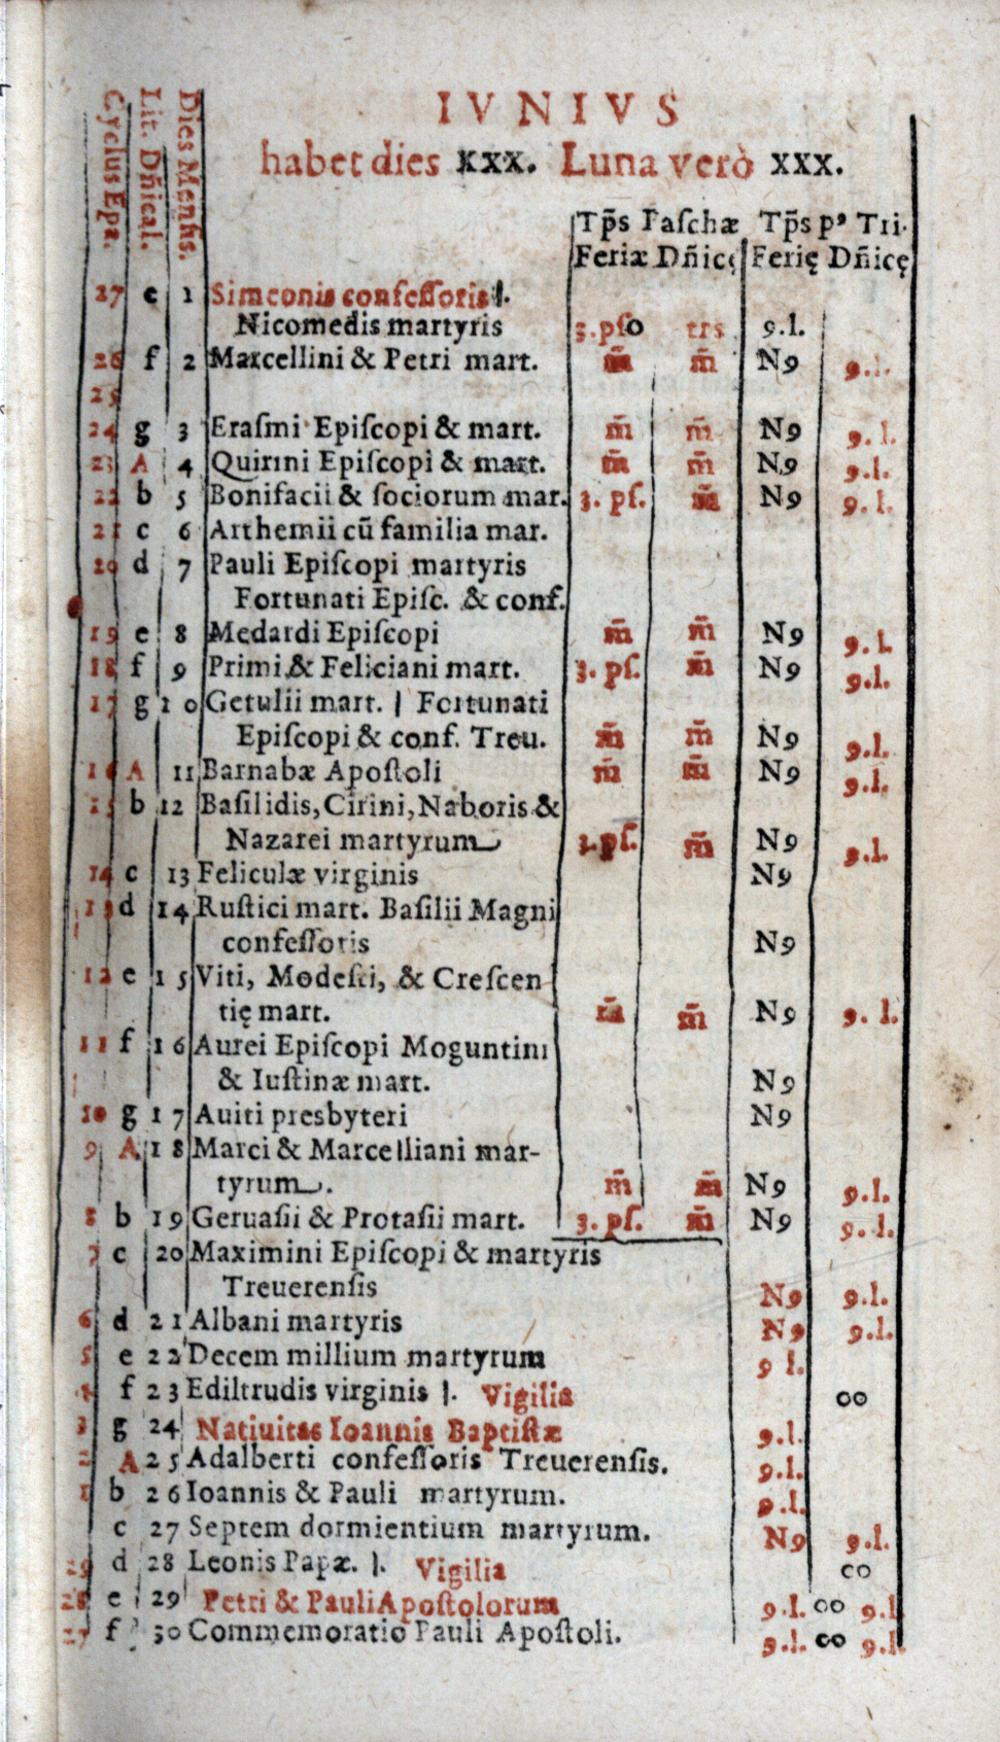 Cyclus Epa.
Lit. Dñical.
Dies Mensis.
IVNIVS
habet dies xxx. Luna verò xxx.
Tp̃s Paschæ Tp̃s pꝰ Tri.
Feriæ Dñicę Ferię Dñicę
27 e 1 Simeonis confessoris |.
Nicomedis martyris 3.pso trs 9.l.
26 f 2 Marcellini & Petri mart. m̃ m̃ N9 9.l.
25
24 g 3 Erasmi Episcopi & mart. m̃ m̃ N9 9.l.
23 A 4 Quirini Episcopi & mart. m̃ m̃ N9 9.l.
22 b 5 Bonifacii & sociorum mar. 3. ps. m̃ N9 9.l.
21 c 6 Arthemii cũ familia mar.
20 d 7 Pauli Episcopi martyris
Fortunati Episc. & conf.
19 e 8 Medardi Episcopi m̃ m̃ N9 9.l.
18 f 9 Primi & Feliciani mart. 3. ps. m̃ N9 9.l.
17 g 10 Getulii mart. | Fortunati
Episcopi & conf. Treu. m̃ m̃ N9 9.l.
16 A 11 Barnabæ Apostoli m̃ m̃ N9 9.l.
15 b 12 Basilidis, Cirini, Naboris &
Nazarei martyrum 3.ps. m̃ N9 9.l.
14 c 13 Feliculæ virginis N9
13 d 14 Rustici mart. Basilii Magni
confessoris N9
12 e 15 Viti, Modesti, & Crescen
tię mart. m̃ m̃ N9 9.l.
11 f 16 Aurei Episcopi Moguntini
& Iustinæ mart. N9
10 g 17 Auiti presbyteri N9
9 A 18 Marci & Marcelliani mar-
tyrum. m̃ m̃ N9 9.l.
8 b 19 Geruasii & Protasii mart. 3. ps. m̃ N9 9.l.
7 c 20 Maximini Episcopi & martyris
Treuerensis N9 9.l.
6 d 21 Albani martyris N9 9.l.
5 e 22 Decem millium martyrum 9 l.
4 f 23 Ediltrudis virginis |. Vigilia ∞
3 g 24 Natiuitas Ioannis Baptistæ 9.l.
2 A 25 Adalberti confessoris Treuerensis. 9.l.
1 b 26 Ioannis & Pauli martyrum. 9.l.
c 27 Septem dormientium martyrum. N9 9.l.
29 d 28 Leonis Papæ. |. Vigilia ∞
28 e 29 Petri & Pauli Apostolorum 9.l. ∞ 9.l.
27 f 30 Commemoratio Pauli Apostoli. 9.l. ∞ 9.l.